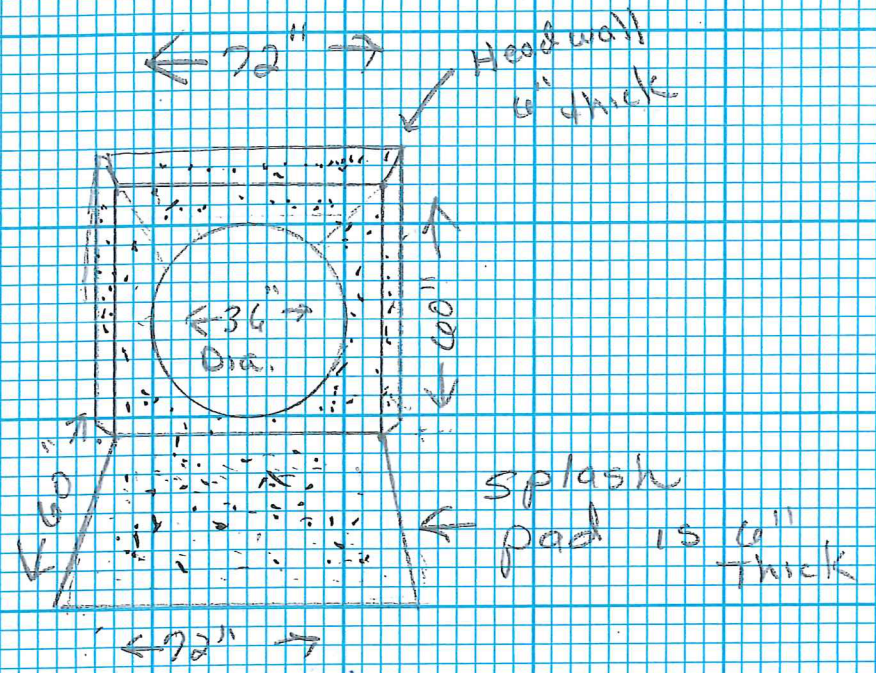 72"
Headwall
6" thick
36"
Dia.
60"
60"
Splash
pad is 6"
Thick
72"